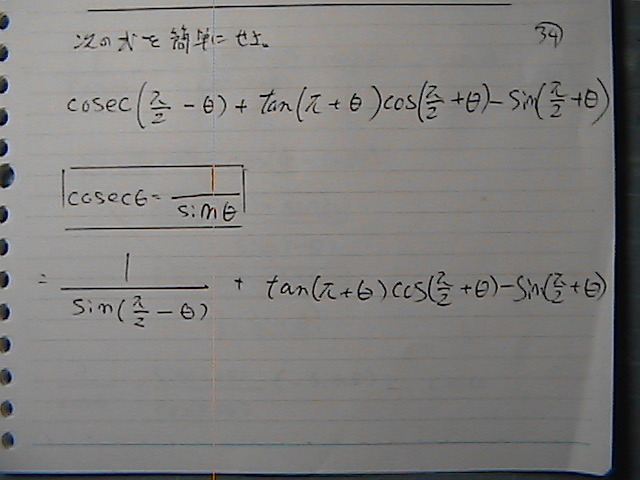 次の式を簡単にせよ。 34
cosec(π/2 - θ) + tan(π + θ)cos(π/2 + θ) - sin(π/2 + θ)
cosecθ = 1/sinθ
= 1/sin(π/2 - θ) + tan(π + θ)cos(π/2 + θ) - sin(π/2 + θ)